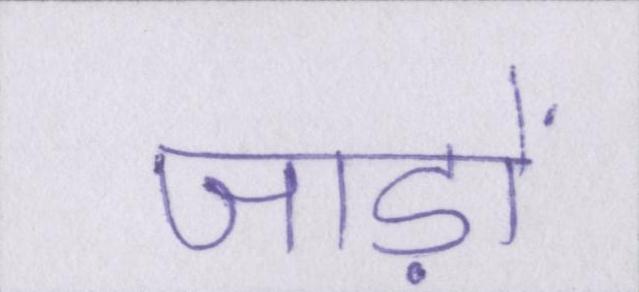 जाड़ों